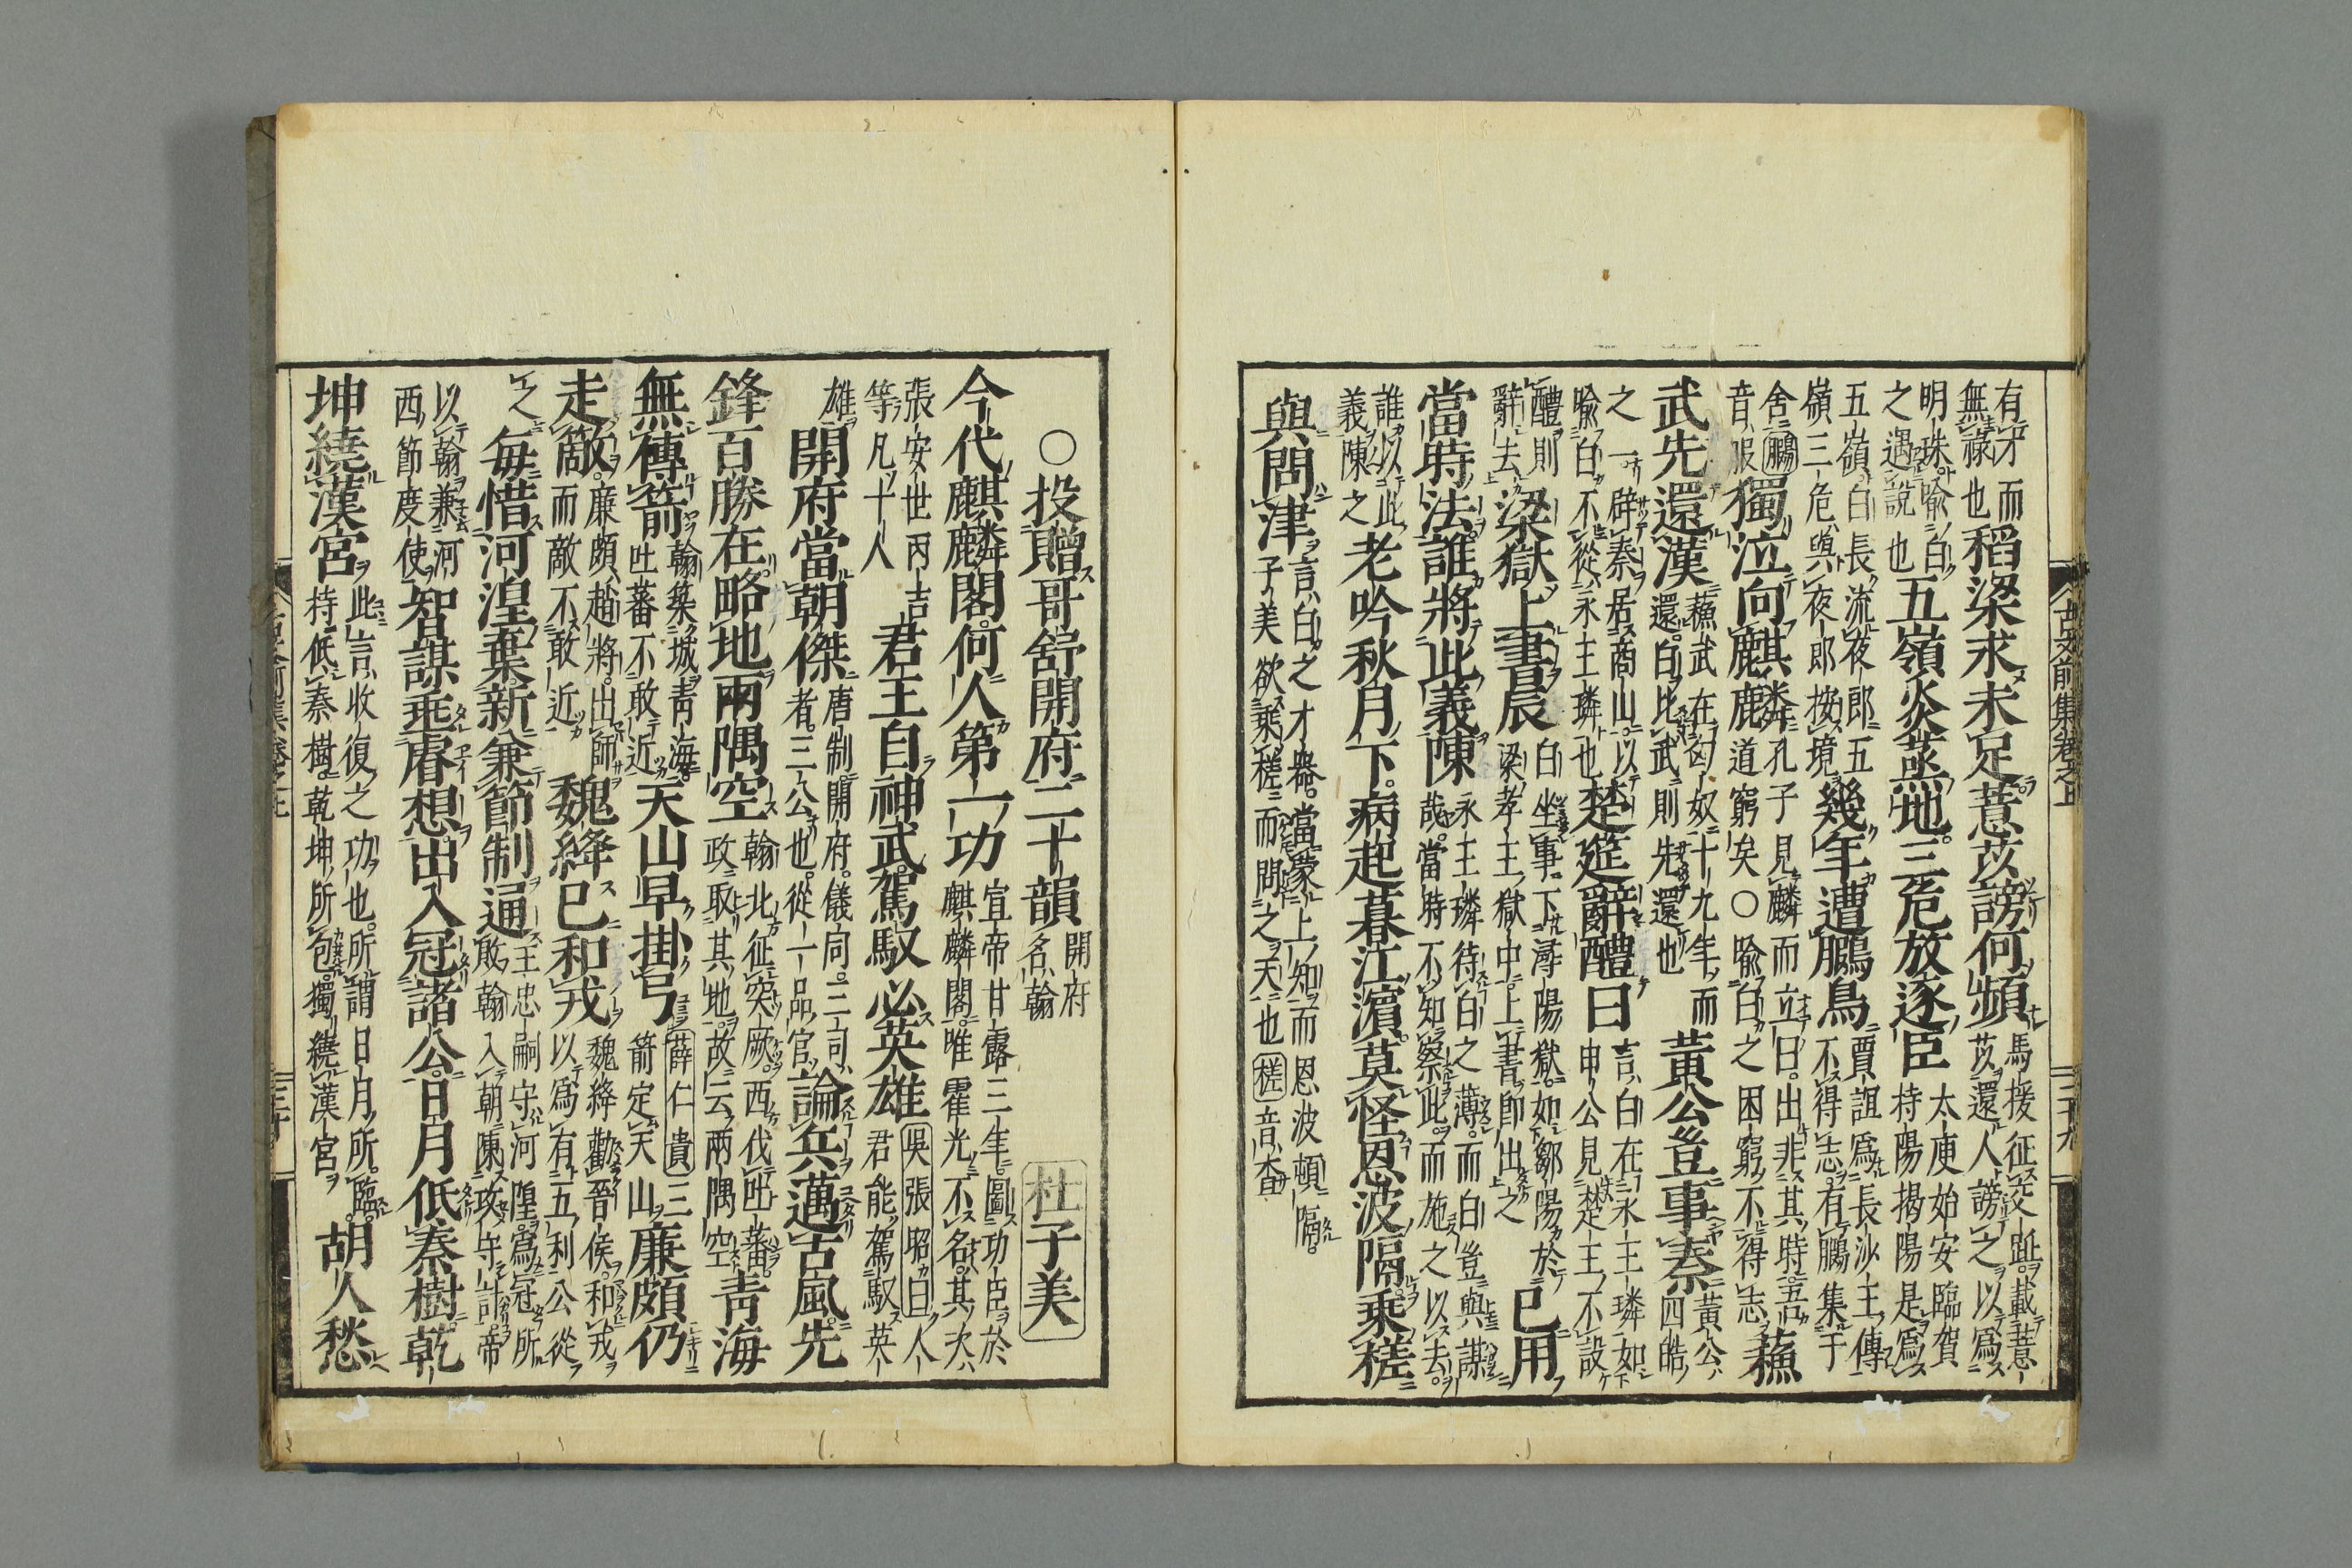 有才而無祿也稻粱求未足薏苡謗何頻馬援征交趾載薏苡還人謗之以爲
明珠喩白之遇說也五嶺炎蒸地三危放逐臣太庾始安臨賀持陽揭陽是爲
五嶺白長流夜郎五嶺三危與夜郎按境幾年遭鵩鳥賈誼爲長沙王傅不得志有鵩集于
舍鵩音服獨泣向麒麟孔子見麟而立曰出非其時吾道窮矣○喩白之困窮不得志蘇
武先還漢蘇武在匈奴十九年而還白比武則先還也黃公豈事秦黃公四皓
之一辟秦居商山以喩白不從永王璘也楚筵辭醴日言白在永王璘如申公見楚王不設
醴則辭去梁獄上書辰白坐事下潯陽獄如鄒陽於梁孝王獄中上書卽出之已用
當時法誰將此義陳永王璘待白之薄而白豈與謀哉當時不知察此而施之以去
誰以此義陳之老吟秋月下病起暮江濱莫怪恩波隔乘槎
與問津言白之才器當蒙上知而恩波頓隔子美欲乘槎而問之天也槎音查
古文前集卷之上
二十九
○投贈哥舒開府二十韻開府名翰 杜子美
今代麒麟閣何人第一功宣帝甘露三年圖功臣於麒麟閣唯霍光不名其次
張安世丙吉等凡十人君王自神武駕馭必英雄吳張昭曰人君能駕馭英
雄開府當朝傑唐制開府儀同三司者三公也從一品官論兵邁古風先
鋒百勝在略地兩隅空翰北征突厥西伐吐蕃政取其地故云兩隅空靑海
無傳箭翰築城靑海吐蕃不敢近天山早掛弓薛仁貴三箭定天山廉頗仍
走敵廉頗趙將出師而敵不敢近魏絳已和戎魏絳勸晉侯和戎以爲有五利公從
之每惜河湟棄新兼節制通王忠嗣守河隍爲冠所敗翰入朝陳攻守計帝
以翰兼河西節度使智謀垂睿想出入冠諸公日月低秦樹乾
坤繞漢宮此言收復之功也所謂日月所臨特低秦樹乾坤所包獨繞漢宮胡人愁
三十